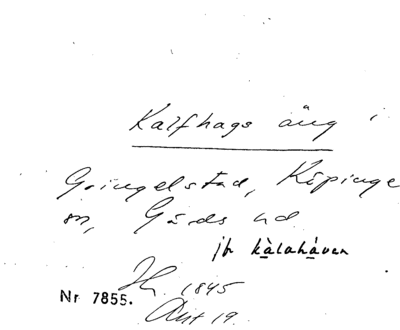 Kalfhags äng i
Gringelstad, Köpinge
sn, Gärds hd
jfr kàlahá̀ven
1845
Nr 7855. Akt 19.